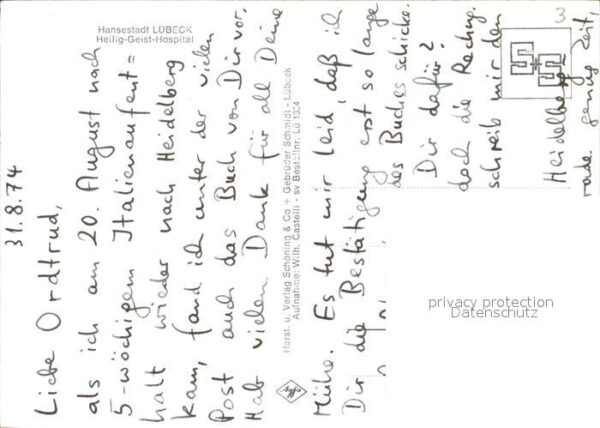 Hansestadt LÜBECK
Heilig-Geist-Hospital
31.8.74
Liebe Ordtrud,
als ich am 20. August nach
5-wöchigem Italienaufent=
halt wieder nach Heidelberg
kam, fand ich unter der vielen
Post auch das Buch von Dir vor.
Hab vielen Dank für all Deine
Horst. u. Verlag Schöning & Co + Gebrüder Schmidt - Lübeck
Aufnahme: Wilh. Castelli - sv Bestellnr. Lü 1304
Mühe. Es tut mir leid, daß ich
Dir die Bestätigung erst so lange
des Buches schicke.
Dir dafür?
doch die Rechng.
schreib mir den
Heidelberg
rade genug Zeit,
3
privacy protection
Datenschutz